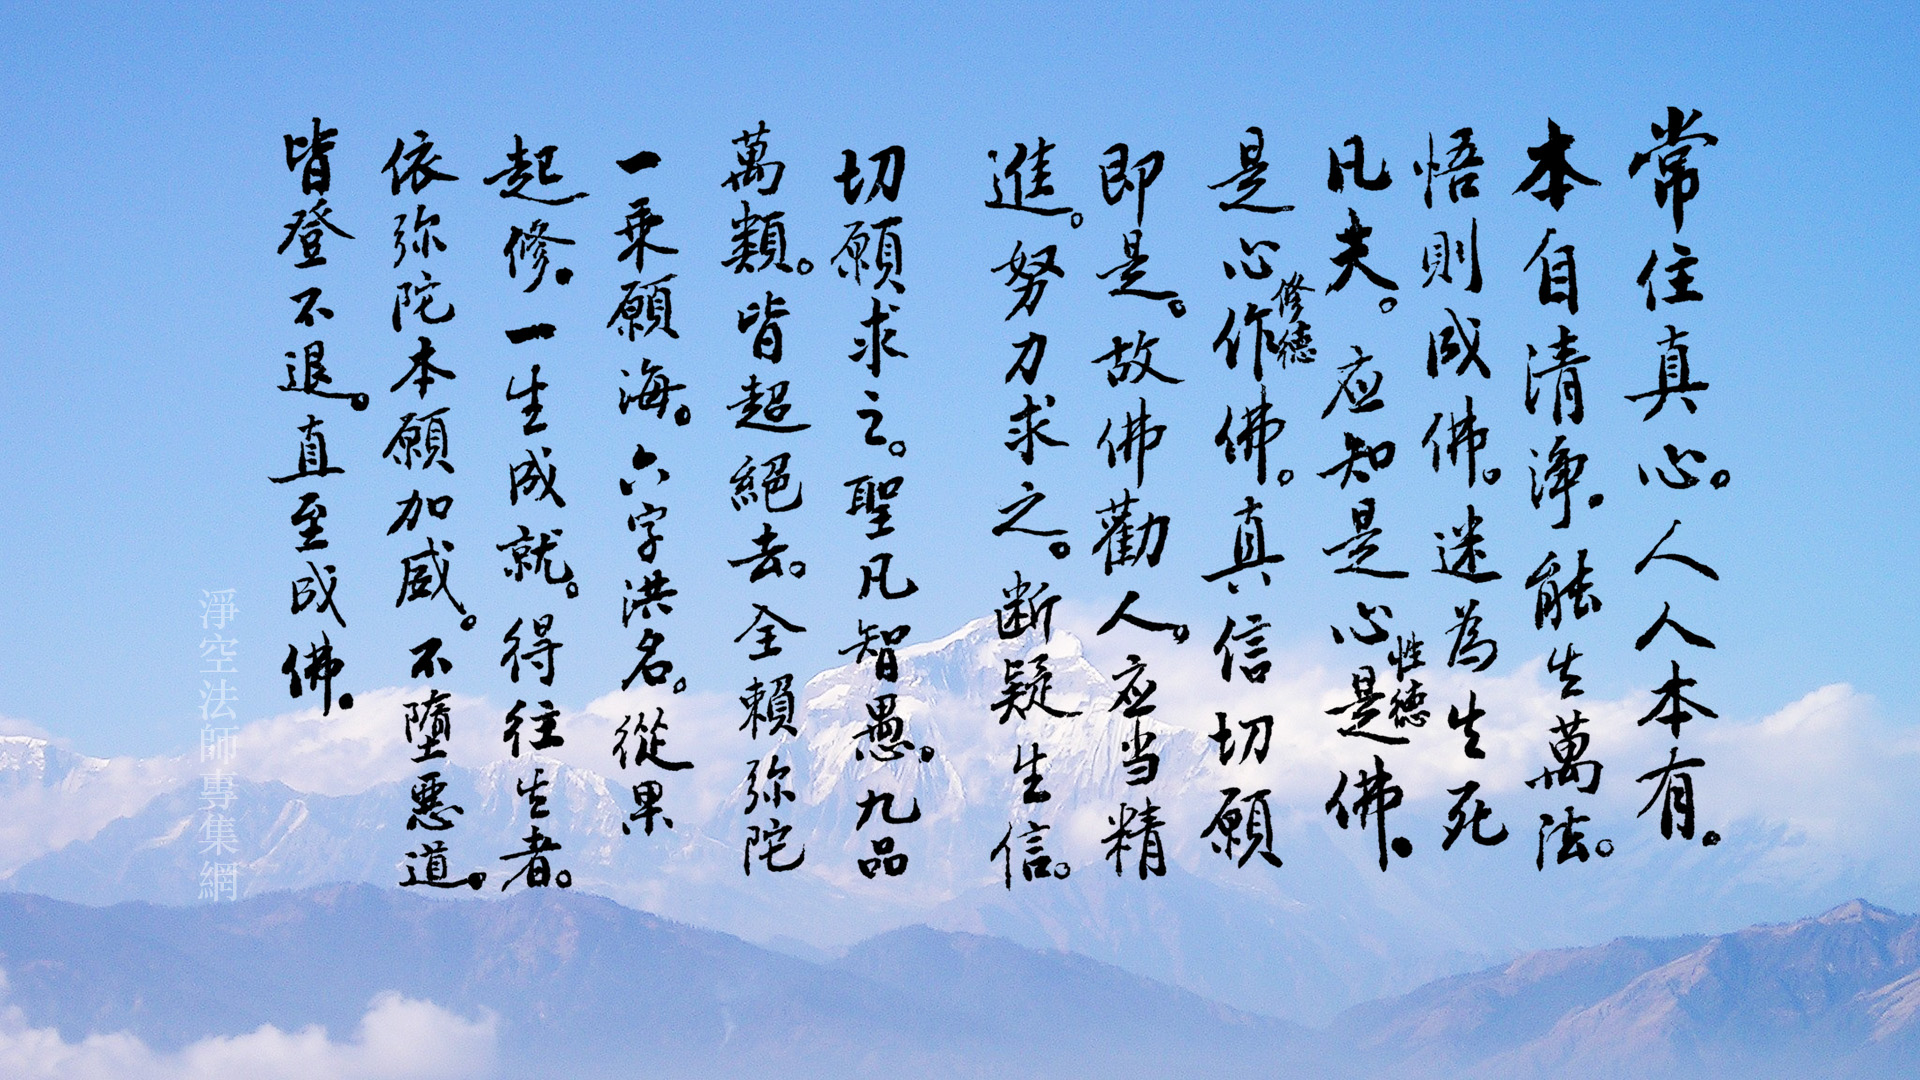 常住真心。人人本有。
本自清淨。能生萬法。
悟則成佛。迷為生死
凡夫。应知是心是佛。
性德
是心作佛。真信切願
修德
即是。故佛勸人。应当精
進。努力求之。断疑生信。
切願求之。聖凡智愚。九品
萬類。皆超絕去。全賴弥陀
一乘願海。六字洪名。從果
起修。一生成就。得往生者。
依弥陀本願加威。不墮惡道。
皆登不退。直至成佛。
淨空法師專集網